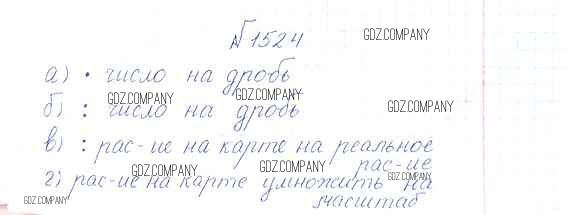 №1524
GDZ.COMPANY
а) • число на дробь
GDZ.COMPANY GDZ.COMPANY
б) : число на дробь
GDZ.COMPANY
в) : рас-ие на карте на реальное
рас-ие
GDZ.COMPANY GDZ.COMPANY GDZ.COMPANY
г) рас-ие на карте умножить на
GDZ.COMPANY
масштаб